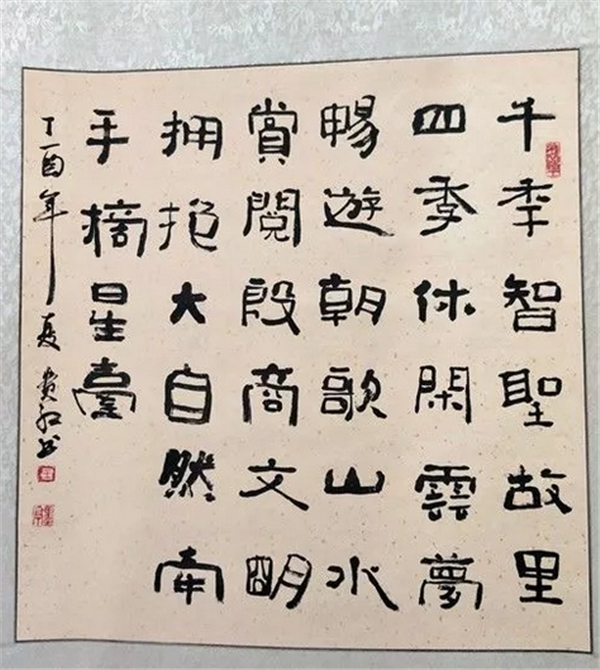 千季智聖故里
四季休閑雲夢
暢遊朝歌山水
賞閱殷商文明
拥抱大自然牽
手摘星臺
丁酉年夏